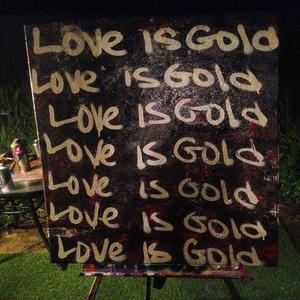 Love is Gold
Love is Gold
Love is Gold
Love is Gold
Love is Gold
Love is Gold
Love is Gold